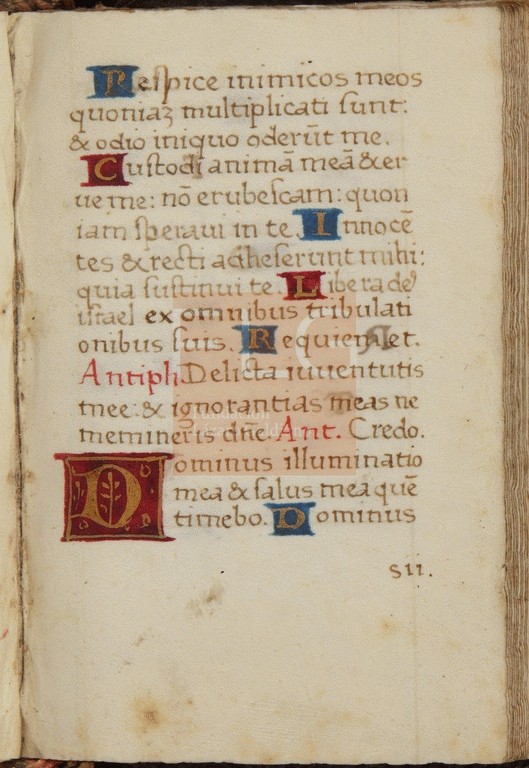 Respice inimicos meos
quoniaz multiplicati sunt:
& odio iniquo oderūt me.
Custodi animā meā & er
ue me: nō erubescam: quon
iam speraui in te. Innocē
tes & recti adheserunt mihi:
quia sustinui te. Libera de⁹
israel ex omnibus tribulati
onibus suis. Requiem et.
Antiph. Delicta iuuentutis
mee: & ignorantias meas ne
memineris dn̄e. Ant. Credo.
Dominus illuminatio
mea & salus mea quē
timebo. Dominus
s11.
Fundación